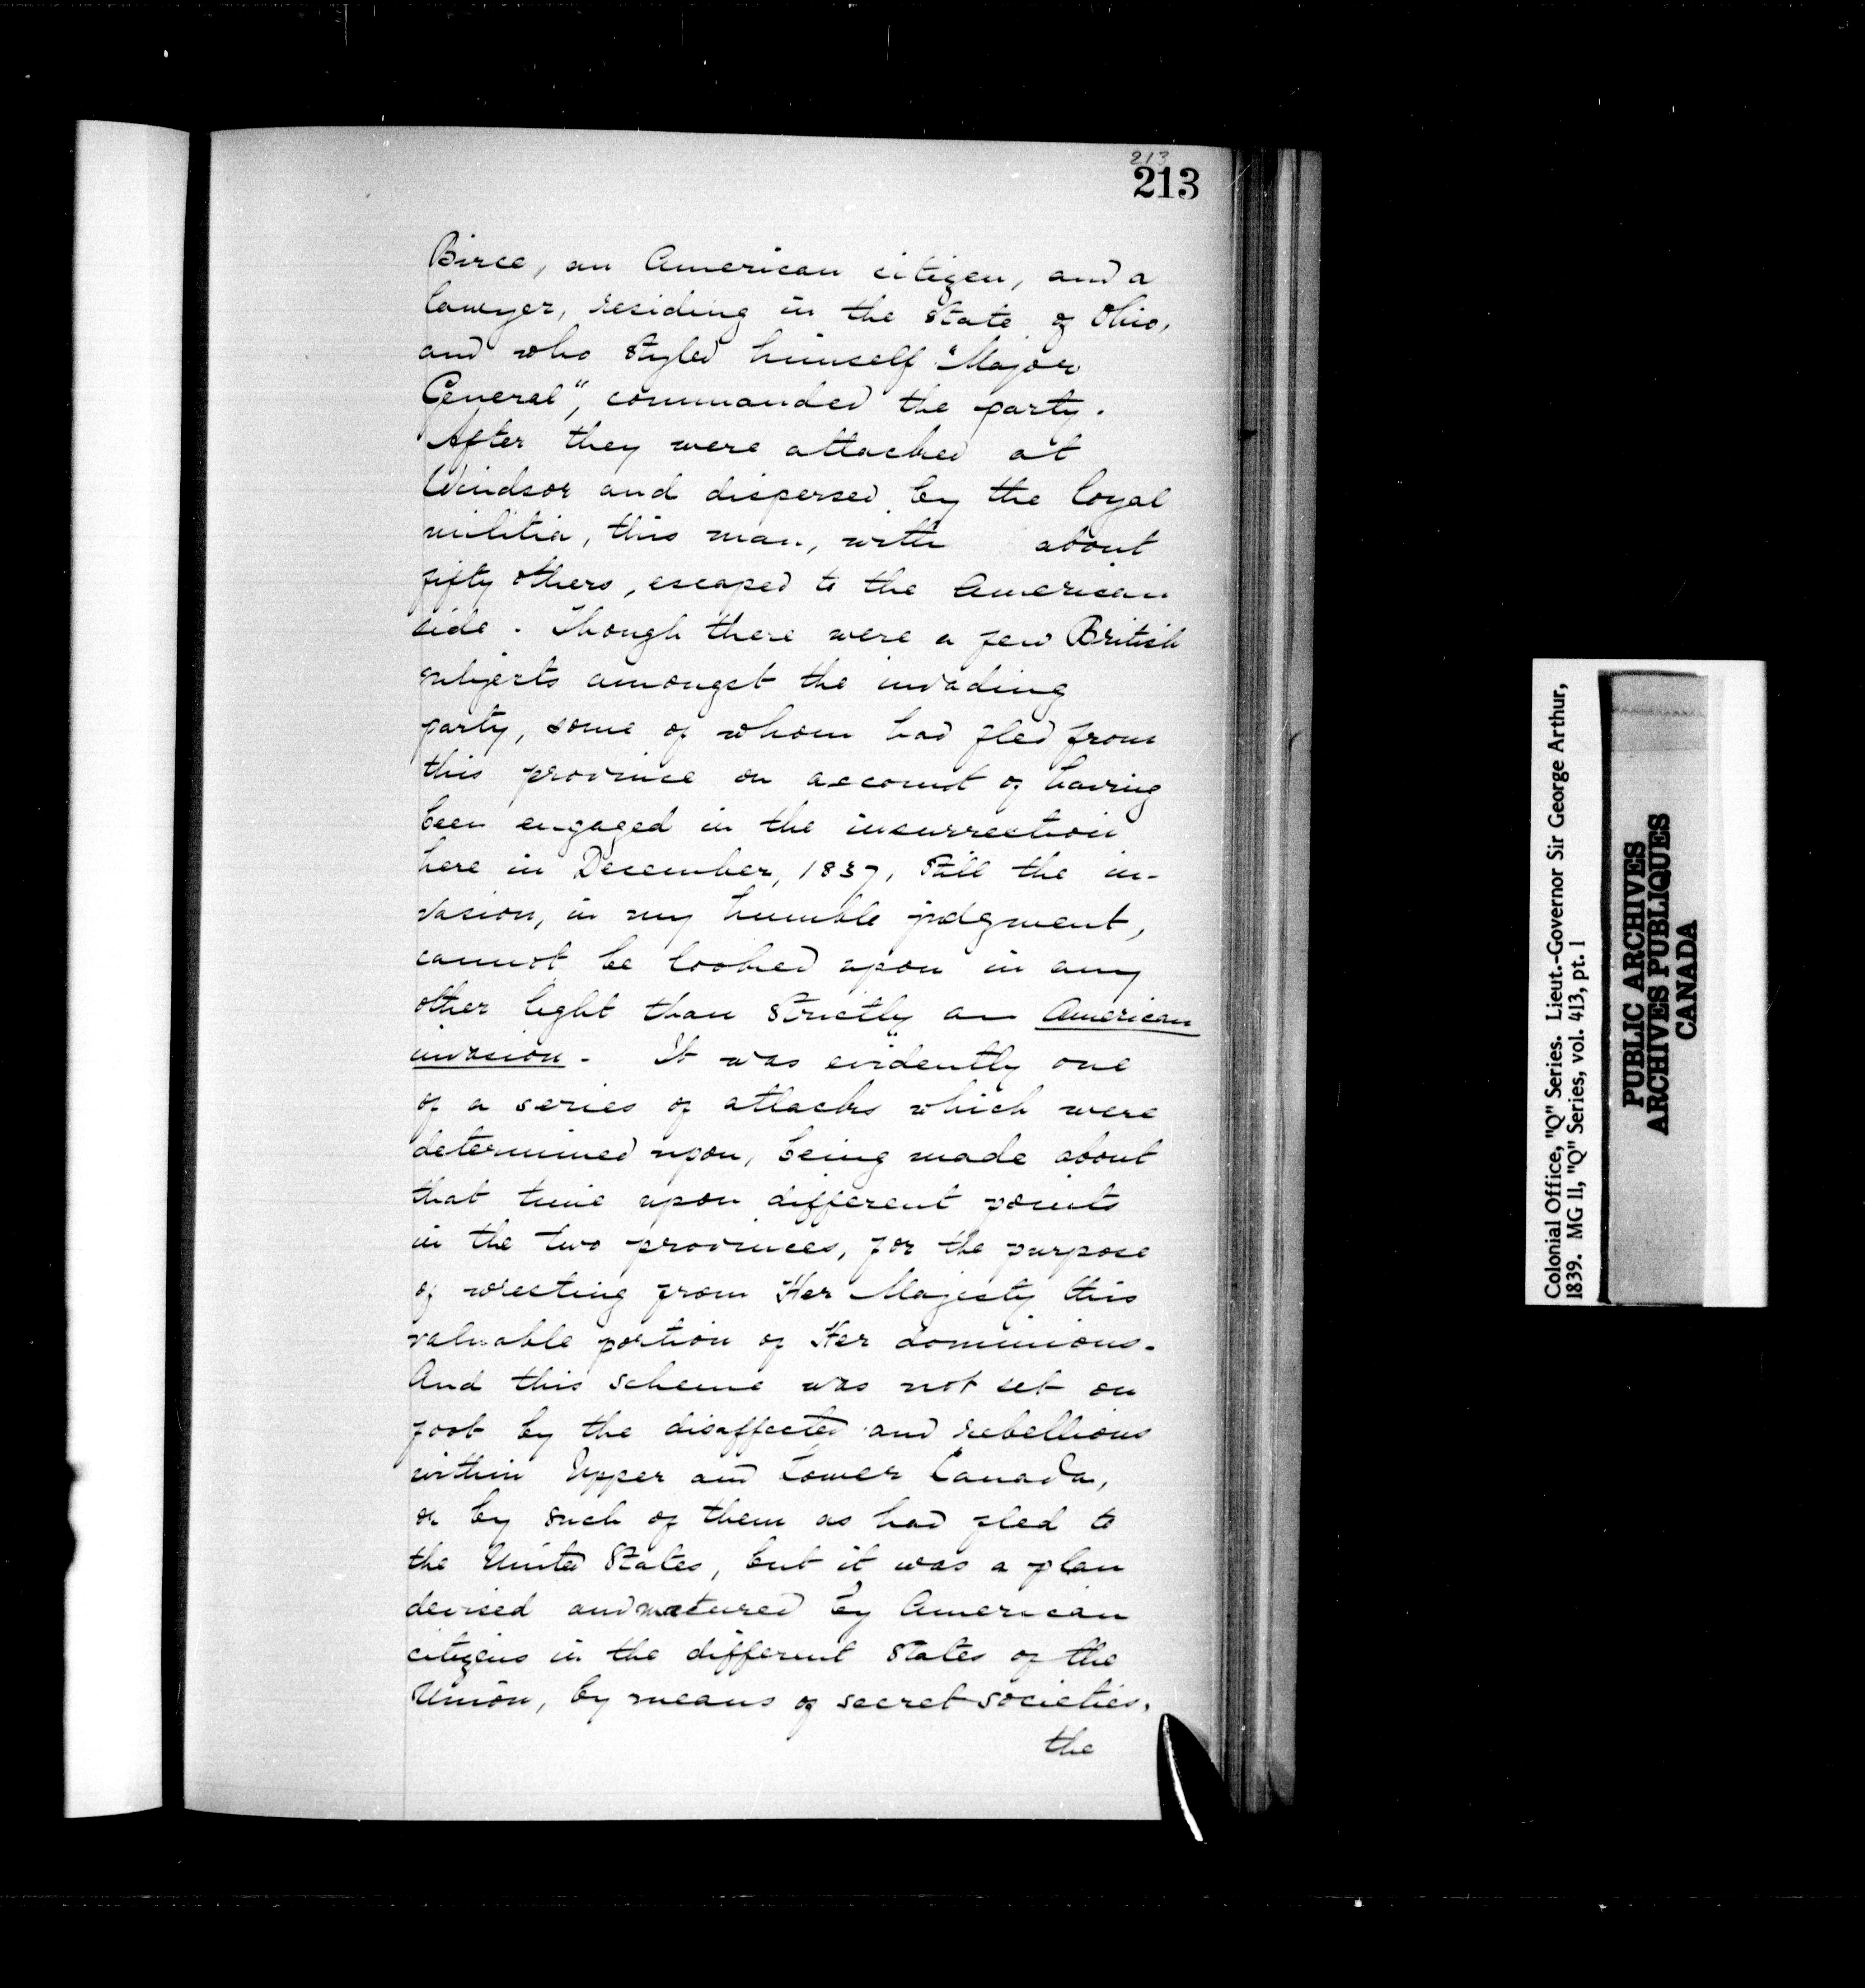 213
213
Birce, an American citizen, and a
lawyer, residing in the State of Ohio,
and who styled himself "Major
General", commanded the party.
After they were attacked at
Windsor and dispersed by the loyal
militia, this man, with about
fifty others, escaped to the American
side. Though there were a few British
subjects amongst the invading
party, some of whom had fled from
this province on account of having
been engaged in the insurrection
here in December, 1837, Still the in-
vasion, in my humble judgment,
cannot be looked upon in any
other light than strictly an American
invasion. It was evidently one
of a series of attacks which were
determined upon, being made about
that time upon different points
in the two provinces, for the purpose
of wresting from Her Majesty this
valuable portion of Her dominions.
And this scheme was not set on
foot by the disaffected and rebellious
within Upper and Lower Canada,
or by such of them as had fled to
the United States, but it was a plan
devised and matured by American
citizens in the different States of the
Union, by means of secret societies.
the
Colonial Office, "Q" Series. Lieut.-Governor Sir George Arthur,
1839. MG 11, "Q" Series, vol. 413, pt. 1
PUBLIC ARCHIVES
ARCHIVES PUBLIQUES
CANADA